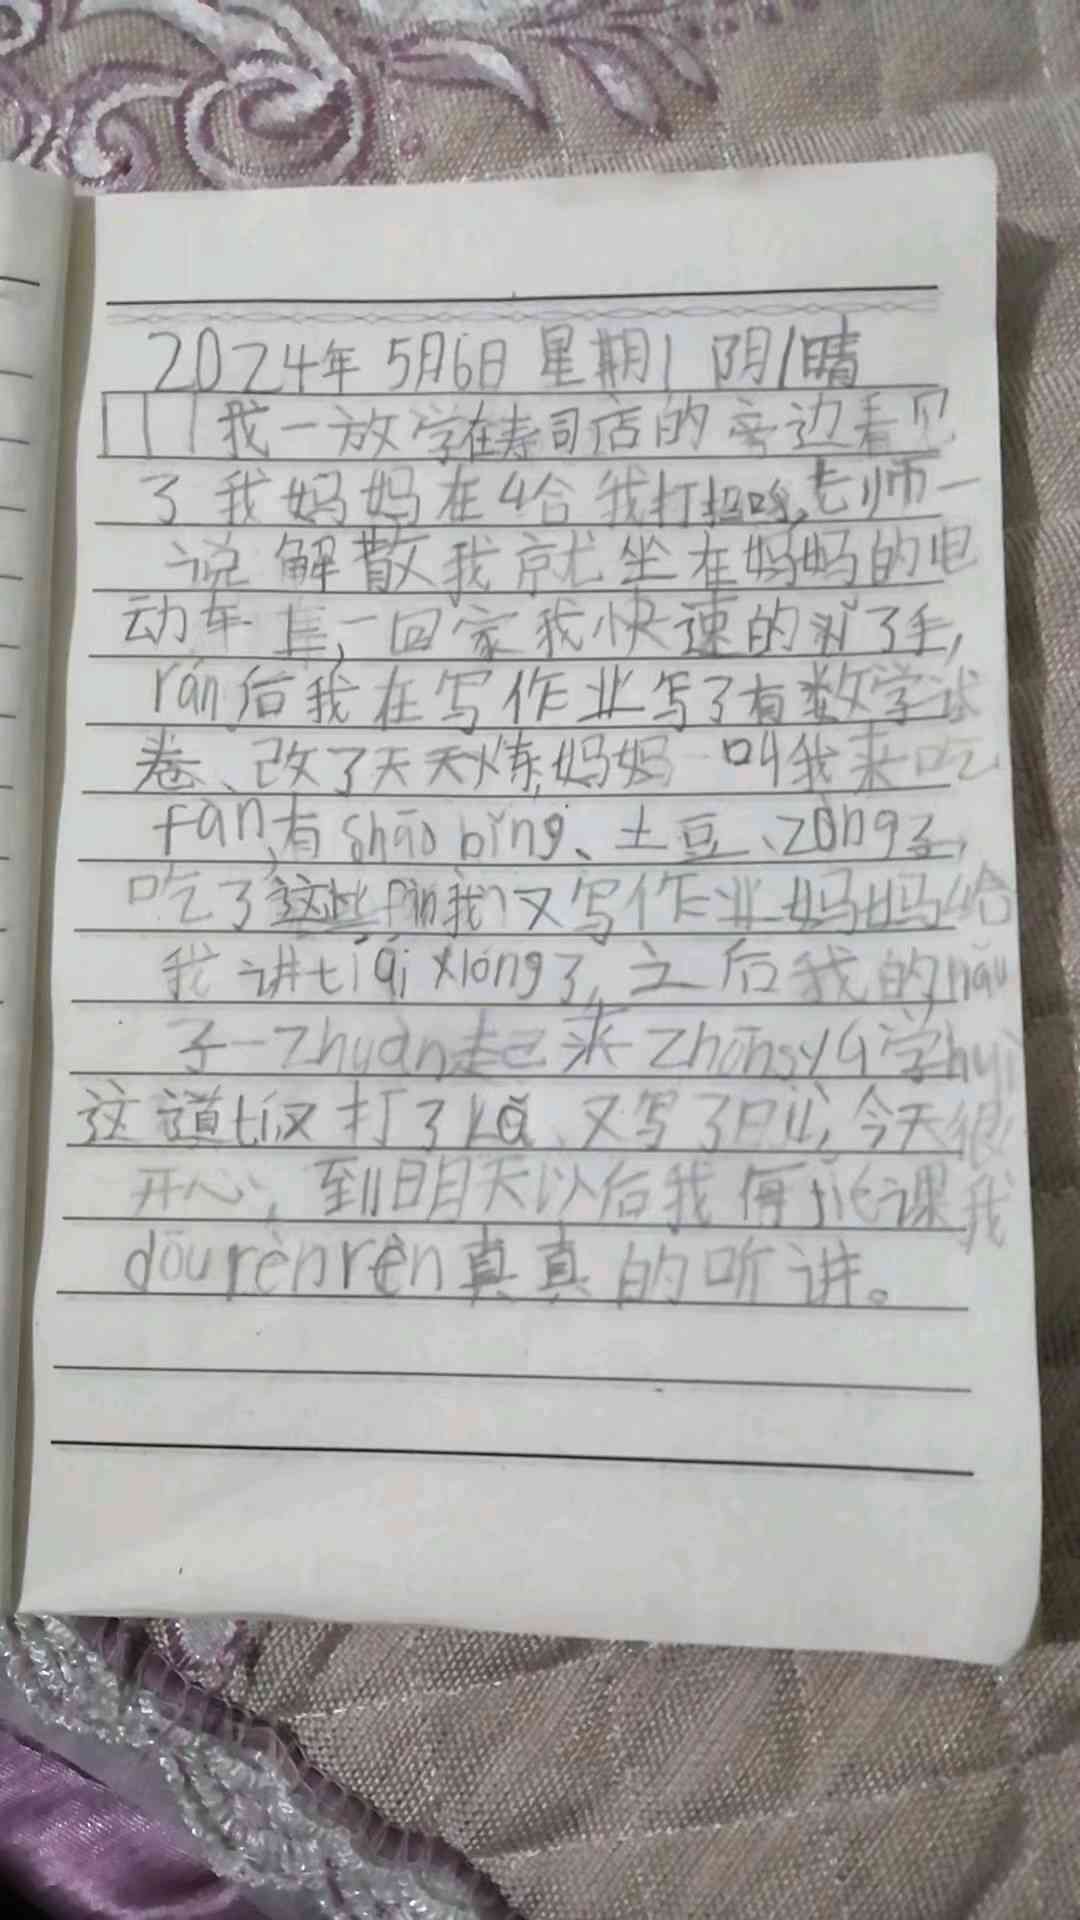 2024年 5月6日 星期1 阴/晴
我一放学在寿司店的旁边看见
了我妈妈在给我打招呼,老师一
说解散我就坐在妈妈的电
动车上,一回家我快速的洗了手,
rán后我在写作业写了有数学试
卷、改了天天炼,妈妈一叫我来吃
fàn,有shāo bǐng、土豆、zòng子,
吃了这些fàn我又写作业妈妈给
我讲tí
了,之后我的nǎo
子一zhuàn起来zhōng学huì
这道tí,又打了kǎ、又写了日记,今天很
开心,到明天以后我每jié课我
dōu rèn rèn真真的听讲。